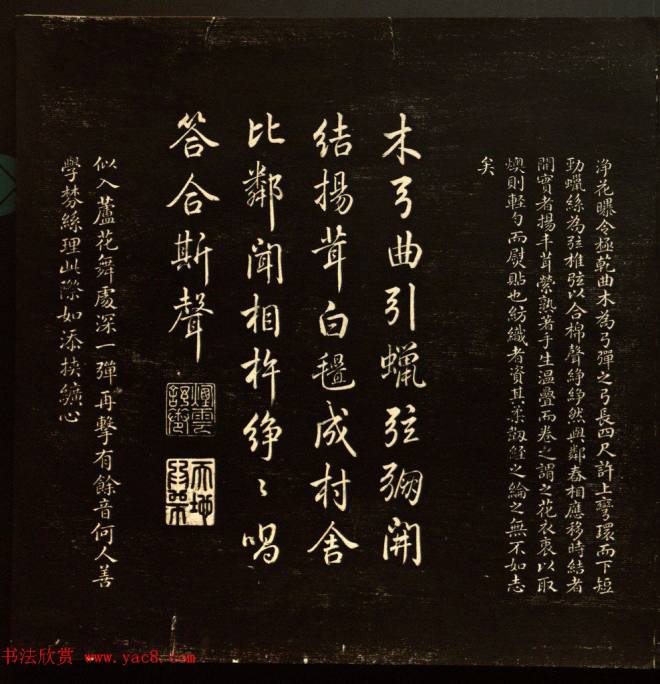 淨花曝令極乾曲木為弓彈之弓長四尺許上彎環而下短
勁蠟絲為弦椎弦以合棉聲錚錚然與鄰舂相應移時結者
開實者揚丰茸縈熟著手生溫疊而卷之謂之花衣衷以取
燠則輕勻而熨貼也紡織者資其柔韌經之綸之無不如志
矣
木弓曲引蠟弦弸開
結揚茸白氎成村舍
比鄰聞相杵錚〻唱
答合斯聲
似入蘆花舞處深一彈再擊有餘音何人善
學棼絲理此際如添挾纊心
书法欣赏 www.yac8.com